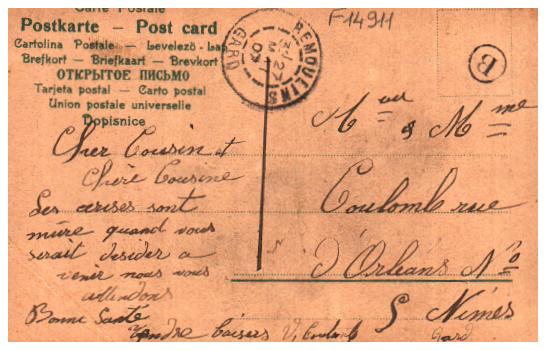 Carte Postale
Postkarte — Post card
Cartolina Postale — Levelező-Lap
Brefkort — Briefkaart — Brevkort
ОТКРЫТОЕ ПИСЬМО
Tarjeta postal — Carto postal
Union postale universelle
Dopisnice
REMOULINS
GARD
F14911
B
Cher Cousin et
Chère Cousine
Les cerises sont
mûre quand vous
serait desider a
venir nous vous
attendons
Bonne Santé
tendre baisers
M & Mme
Coulomb rue
d'Orléans No
5 Nimes
Gard